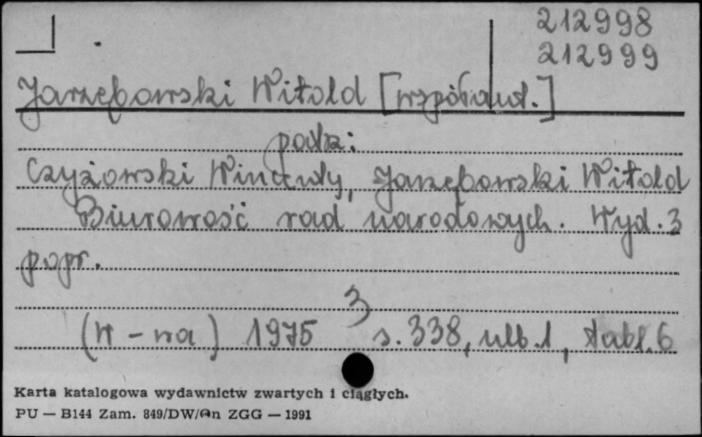 212998
212999
Jarzębowski Witold [współaut.]
patrz:
Czyżowski Wincenty, Jarzębowski Witold
Biurowość rad narodowych. Wyd. 3
popr.
3
(W-wa) 1975 s. 338, nlb. 1, tabl. 6
Karta katalogowa wydawnictw zwartych i ciągłych.
PU — B144 Zam. 849/DW/an ZGG — 1991